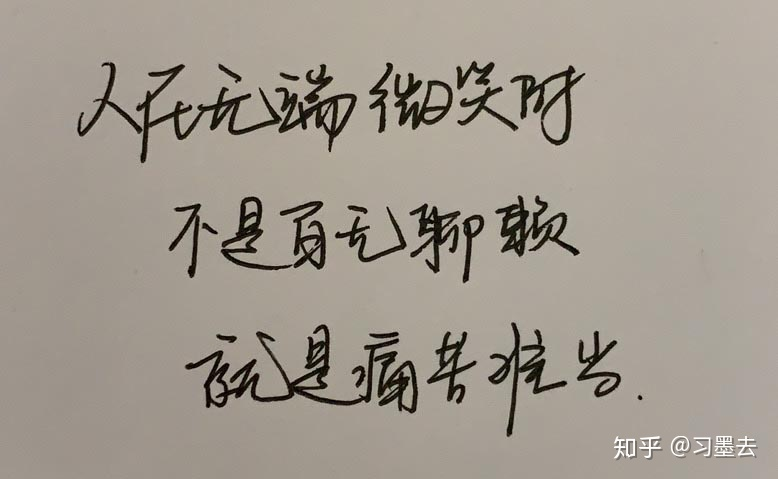 人在无端微笑时
不是百无聊赖
就是痛苦难当.
知乎 @习墨去